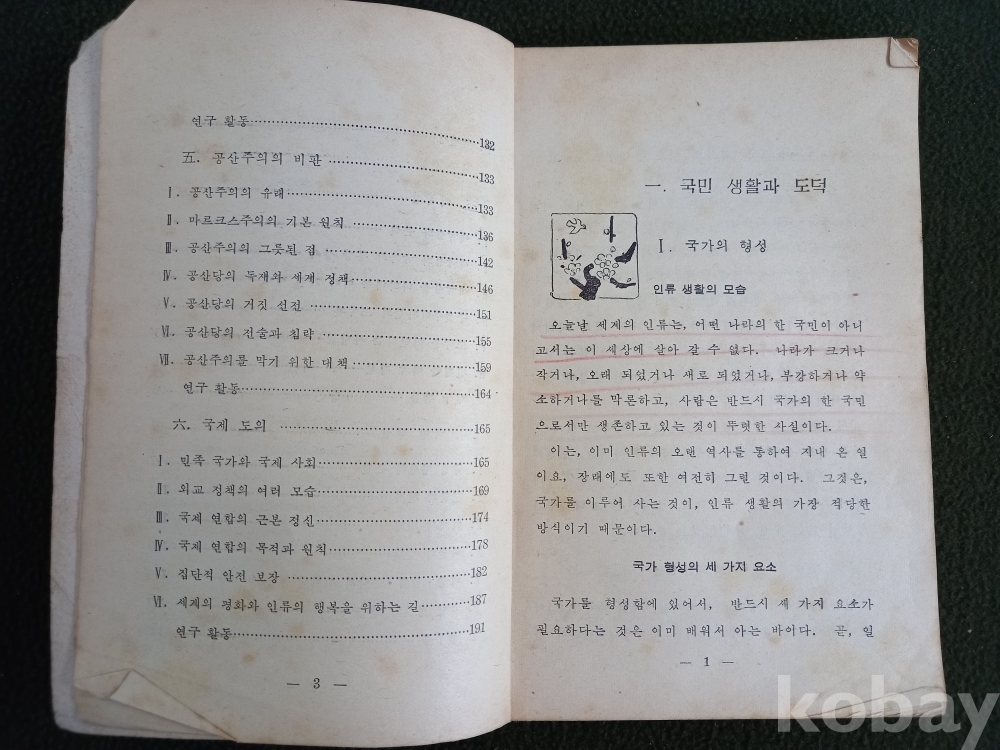 연구 활동 ········ 132
五. 공산주의의 비판 ········ 133
Ⅰ. 공산주의의 유래 ········ 133
Ⅱ. 마르크스주의의 기본 원칙 ········ 136
Ⅲ. 공산주의의 그릇된 점 ········ 142
Ⅳ. 공산당의 독재와 세계 정책 ········ 146
Ⅴ. 공산당의 거짓 선전 ········ 151
Ⅵ. 공산당의 전술과 침략 ········ 155
Ⅶ. 공산주의를 막기 위한 대책 ········ 159
연구 활동 ········ 164
六. 국제 도의 ········ 165
Ⅰ. 민족 국가와 국제 사회 ········ 165
Ⅱ. 외교 정책의 여러 모습 ········ 169
Ⅲ. 국제 연합의 근본 정신 ········ 174
Ⅳ. 국제 연합의 목적과 원칙 ········ 178
Ⅴ. 집단적 안전 보장 ········ 182
Ⅵ. 세계의 평화와 인류의 행복을 위하는 길 ········ 187
연구 활동 ········ 191
— 3 —
一. 국민 생활과 도덕
Ⅰ. 국가의 형성
인류 생활의 모습
오늘날 세계의 인류는, 어떤 나라의 한 국민이 아니
고서는 이 세상에 살아 갈 수 없다. 나라가 크거나
작거나, 오래 되었거나 새로 되었거나, 부강하거나 약
소하거나를 막론하고, 사람은 반드시 국가의 한 국민
으로서만 생존하고 있는 것이 뚜렷한 사실이다.
이는, 이미 인류의 오랜 역사를 통하여 지내 온 일
이요, 장래에도 또한 여전히 그럴 것이다. 그것은,
국가를 이루어 사는 것이, 인류 생활의 가장 적당한
방식이기 때문이다.
국가 형성의 세 가지 요소
국가를 형성함에 있어서, 반드시 세 가지 요소가
필요하다는 것은 이미 배워서 아는 바이다. 곧, 일
— 1 —
kobay